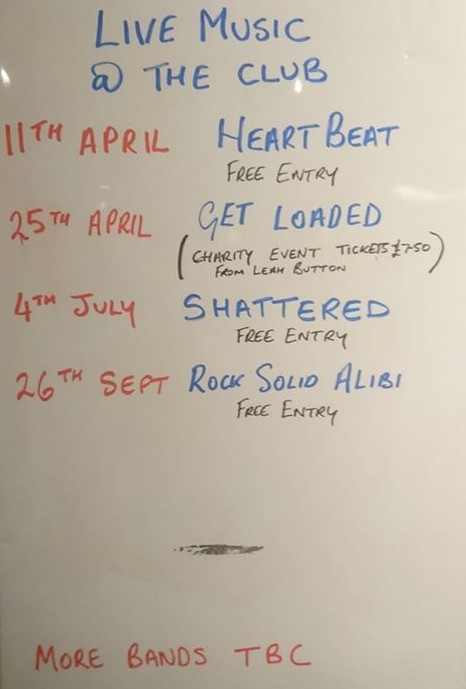 LIVE MUSIC
@ THE CLUB
11TH APRIL HEARTBEAT
FREE ENTRY
25TH APRIL GET LOADED
(CHARITY EVENT TICKETS £7.50
FROM LEAH BUTTON)
4TH JULY SHATTERED
FREE ENTRY
26TH SEPT ROCK SOLID ALIBI
FREE ENTRY
MORE BANDS TBC